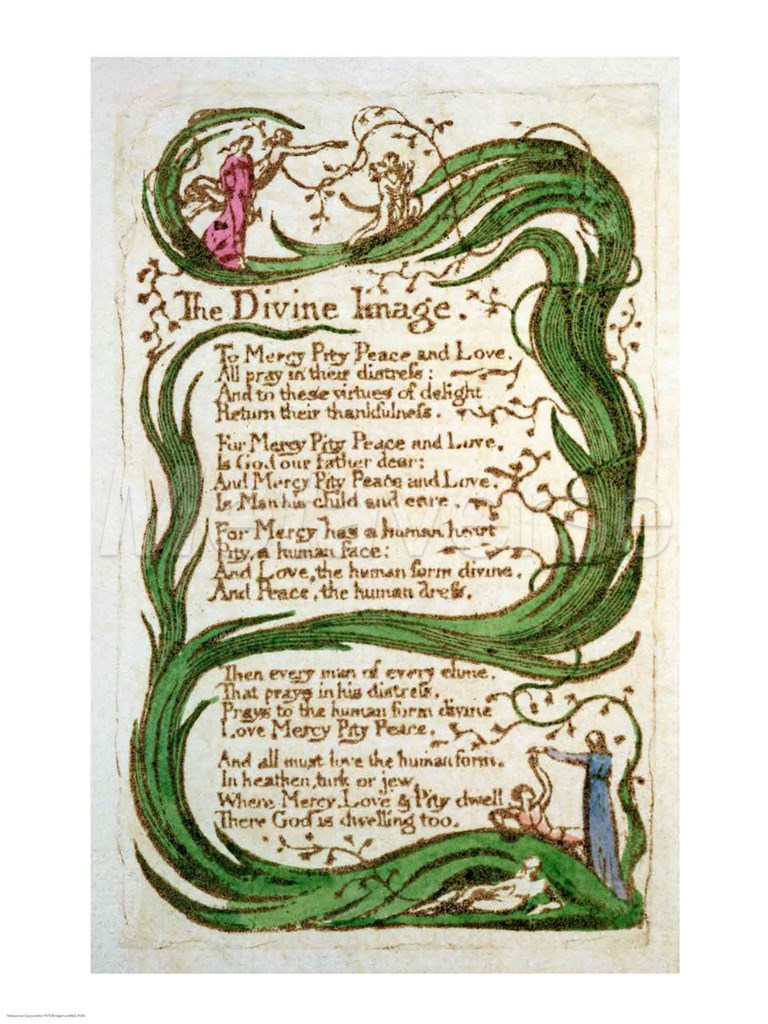 The Divine Image.
To Mercy Pity Peace and Love.
All pray in their distress:
And to these virtues of delight
Return their thankfulness.
For Mercy Pity Peace and Love,
Is God our father dear:
And Mercy Pity Peace and Love.
Is Man his child and care.
For Mercy has a human heart
Pity, a human face:
And Love, the human form divine.
And Peace, the human dress.
Then every man of every clime.
That prays in his distress.
Prays to the human form divine
Love Mercy Pity Peace.
And all must love the human form.
In heathen, turk or jew.
Where Mercy, Love & Pity dwell
There God is dwelling too.